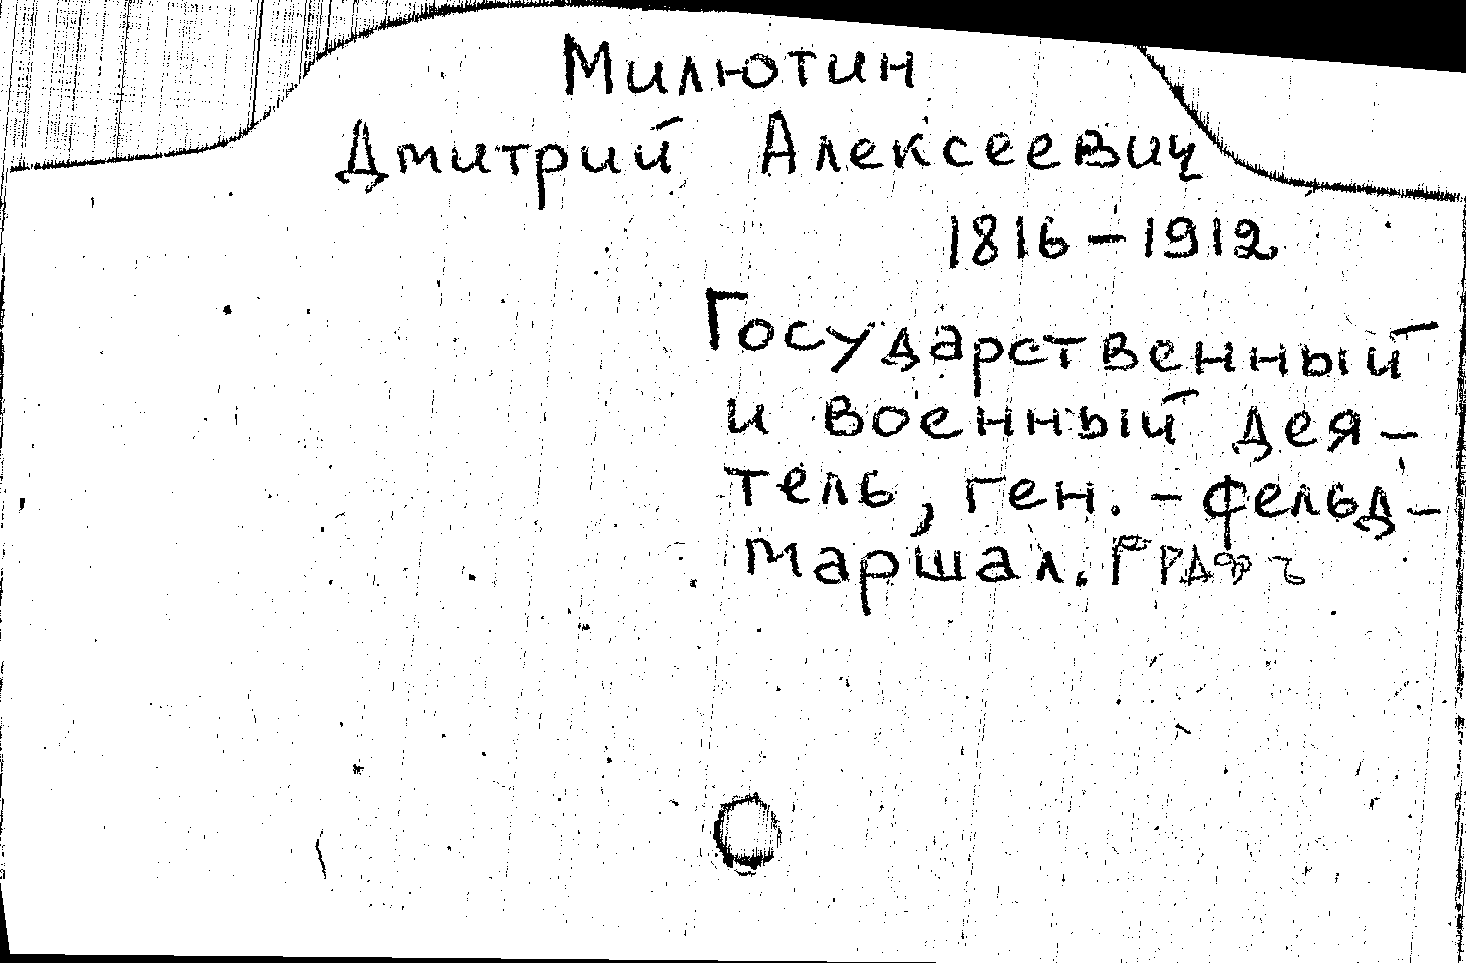 Милютин
Дмитрий Алексеевич
1816-1912
Государственный
и военный дея-
тель, ген. - фельд-
маршал. ГРАФЪ